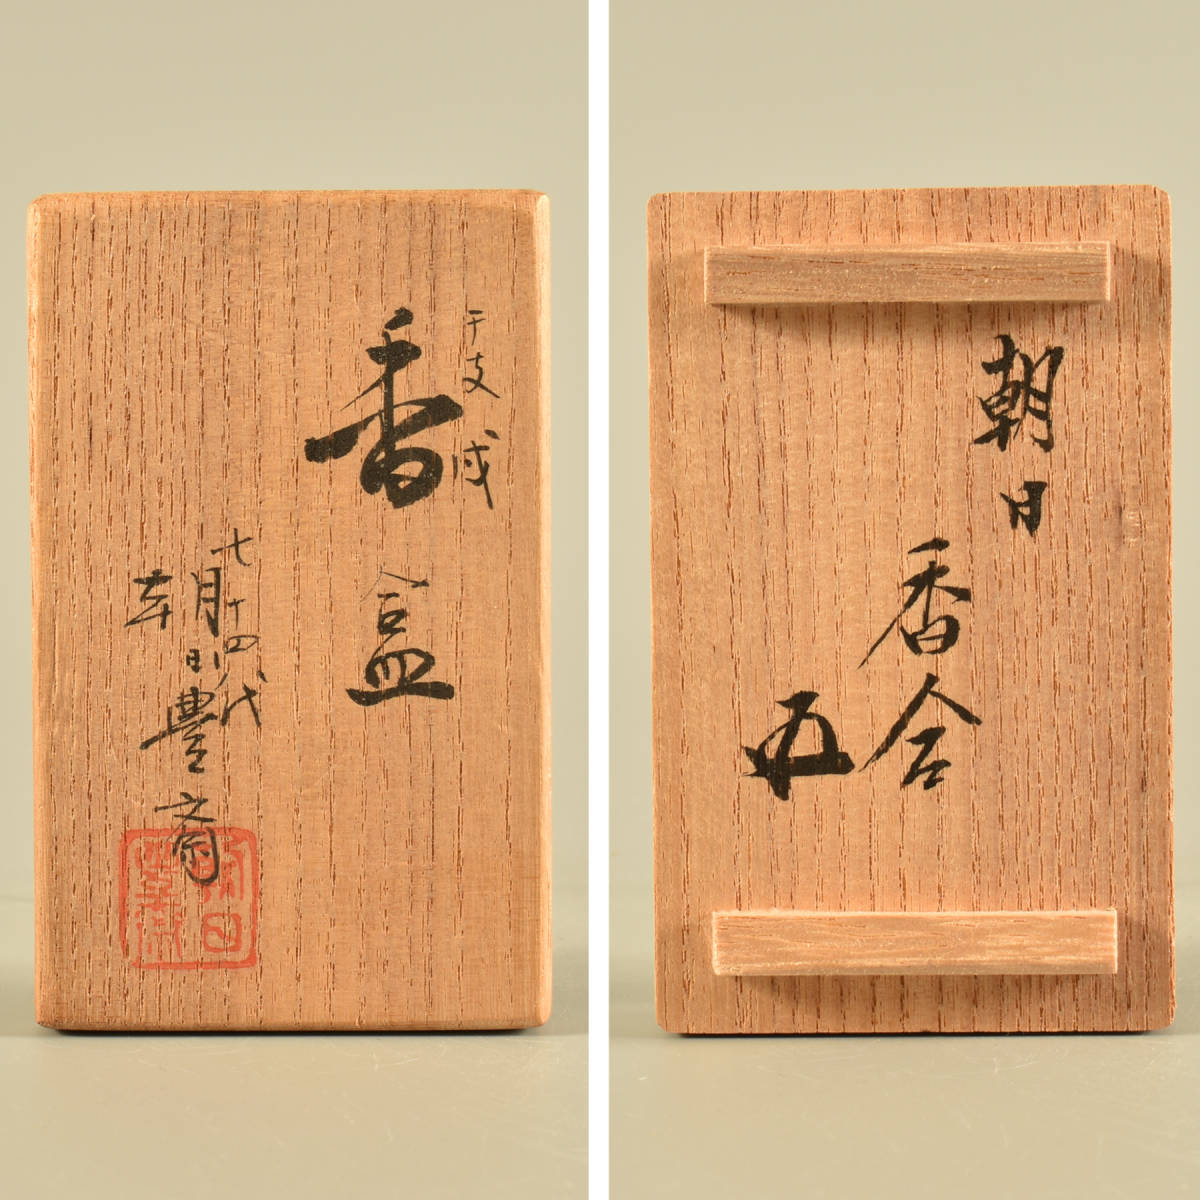 干支 戌
香盒
七十四代
朝日豊斎
朝日
香合